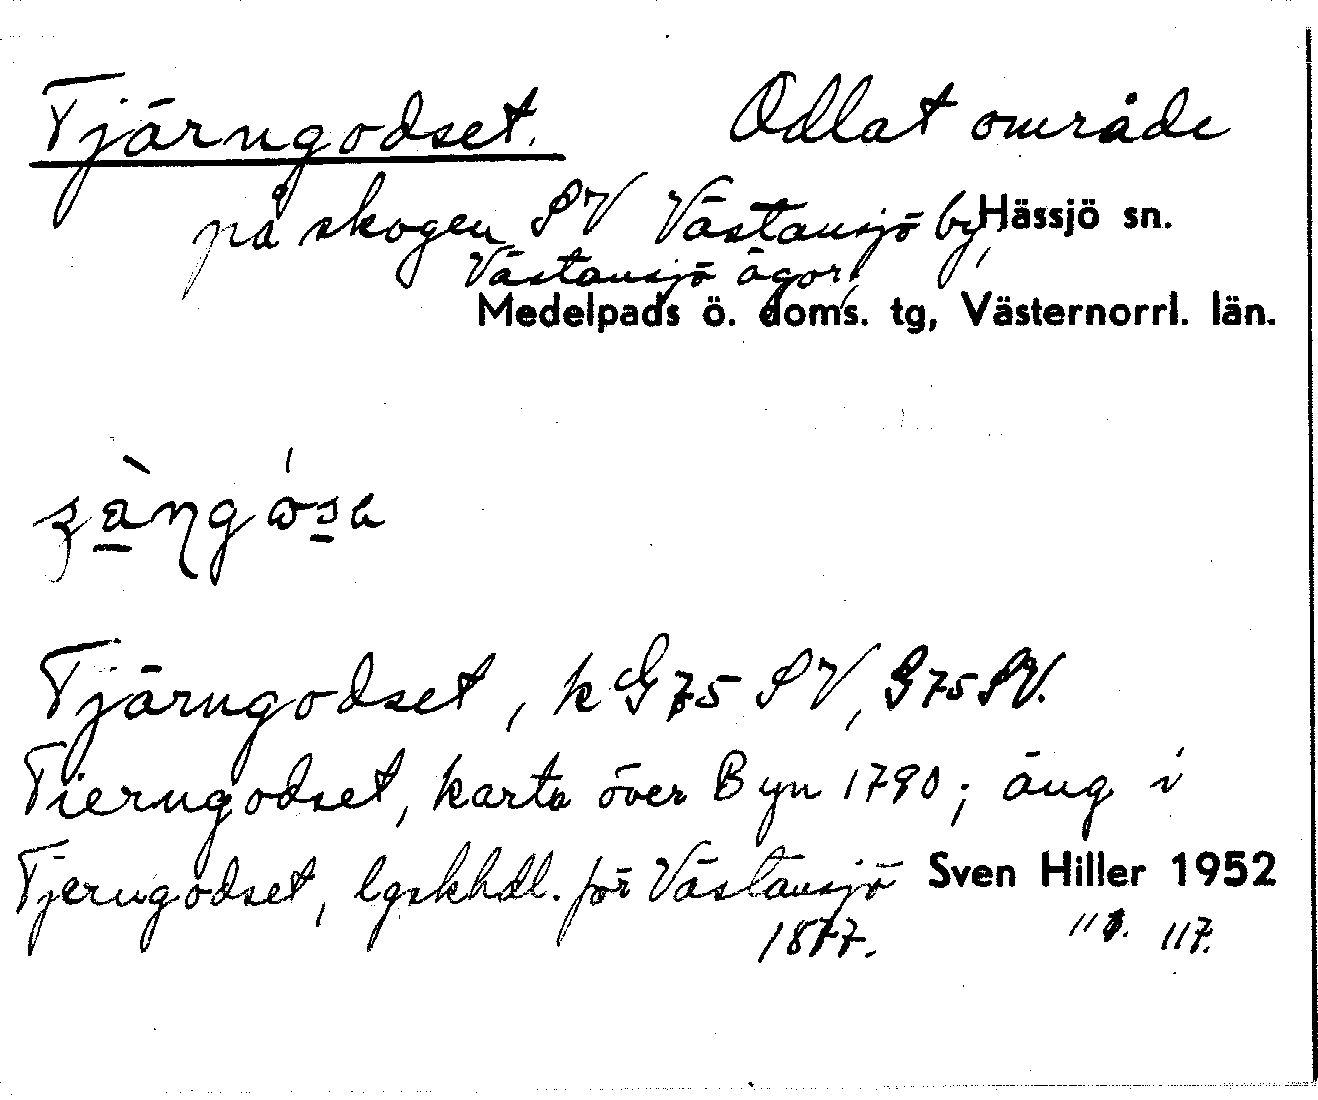 Tjärngodset. Odlat område
på skogen SV Västansjö by, Hässjö sn.
Västansjö ägor,
Medelpads ö. doms. tg, Västernorrl. län.
Tjärngodset, k G 75 SV, G 75 SV.
Tierngodset, karta över Byn 1790; äng i
Tjerngodset, lgskhdl. för Västansjö Sven Hiller 1952
1877. 117.